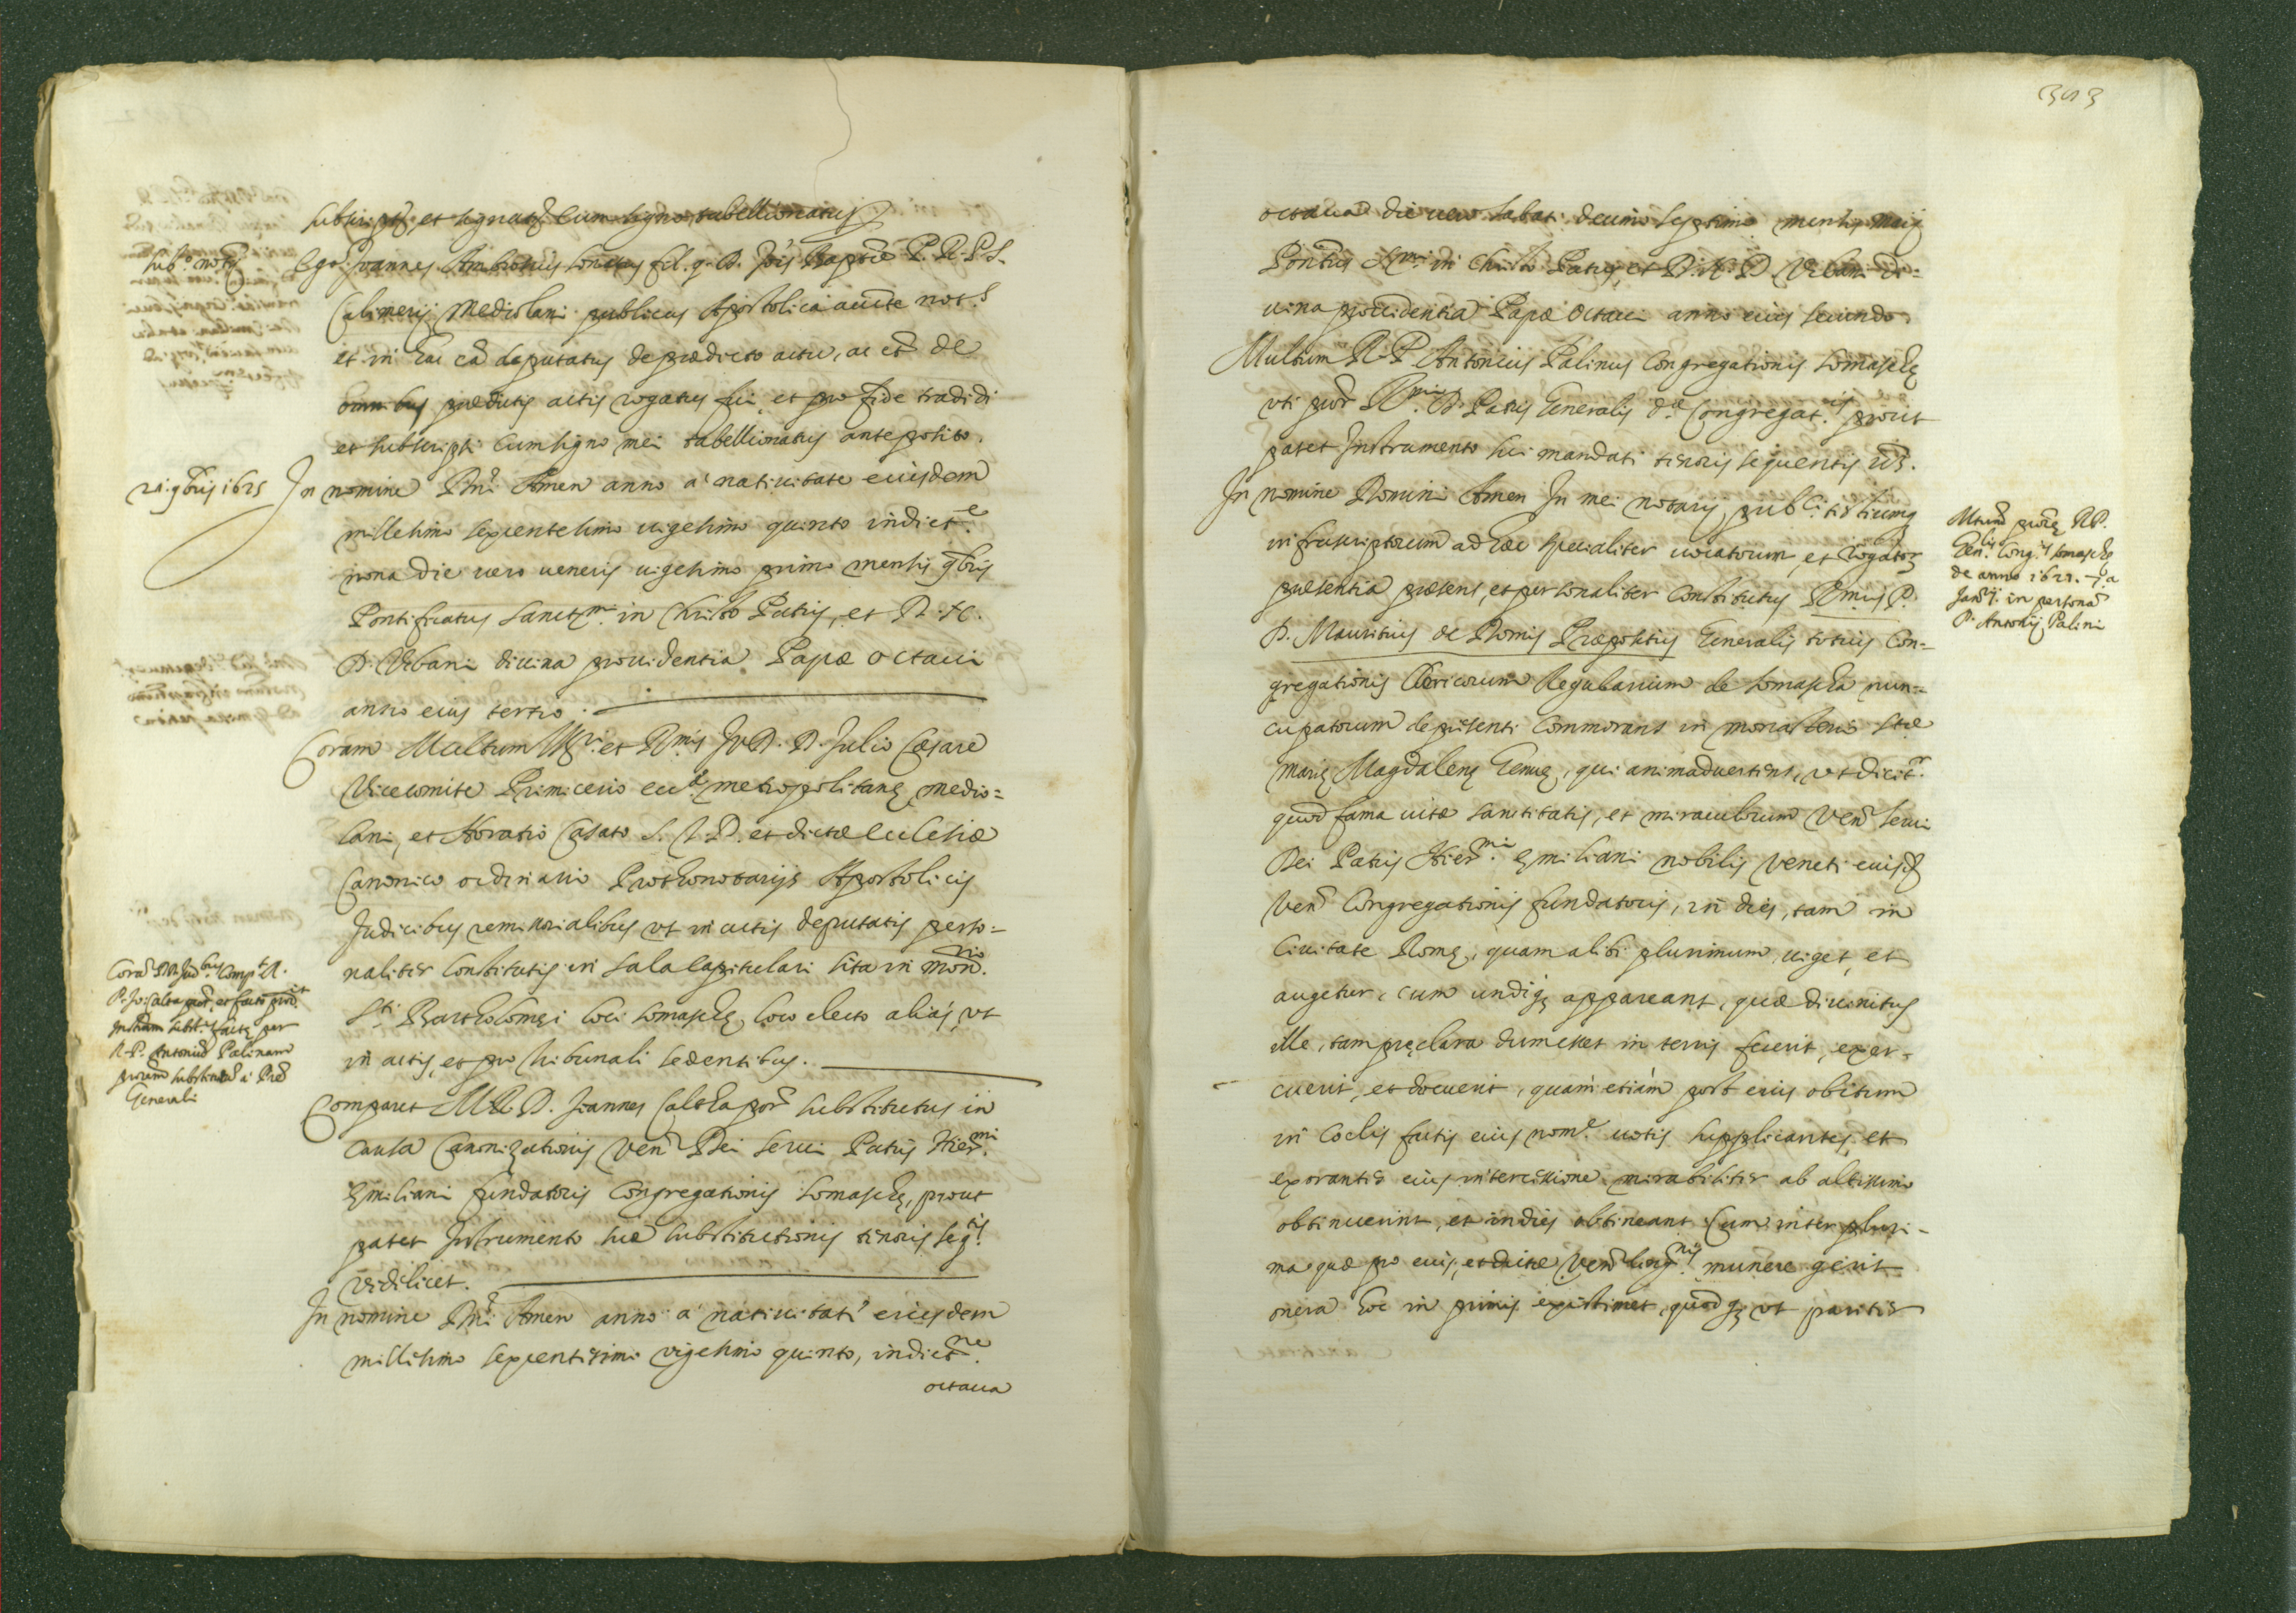 subscript, et signat, cum signo tabellionatus
Ego Joannes Ambrosius fil. q. D. Jo: Baptæ P. N. P. S.
Calimerij Mediolani publicus Apostolica aucte not.s
et in hac cã deputatus de prædicto actu, ac et de
omnibus prædictis actis rogatus fui, et pro fide tradidi
et subscripsi cum signo mei tabellionatus anteposito.
In nomine Dni Amen anno a' natiuitate eiusdem
millesimo sexcentesimo uigesimo quinto indict.e
nona die uero ueneris uigesimo primo mensis 9bris
Pontificatus Sanct.mi in Christo Patris, et D. N.
D. Vrbani diuina prouidentia Papæ octaui
anno eius tertio.
Coram Multum Ill. et R.mis D. Julio Cæsare
Vicecomite Primicerio eccl. metropolitanę Medio=
lani, et Horatio Casato S. T. D. et dictæ ecclesiæ
Canonico ordinario Prothonotarijs Apostolicis
Judicibus remissorialibus vt in actis deputatis perso=
naliter constitutis in sala capitulari sita in mon.rio
S.ti Bartholomęi loci Somaschę, loco electo aliàs, vt
in actis, et pro tribunali sedentibus.
Comparet M. R. D. Joannes Calta por substitutus in
causa Canonizationis Ven. Dei serui Patris Hier.mi
Ęmiliani fundatoris Congregationis Somaschę, prout
patet Instrumento suæ substitutionis tenoris seq.tis
videlicet.
In nomine Dni Amen anno a' natiuitate eiusdem
millesimo sexcentesimo vigesimo quinto, indict.ne
octaua
Sub.o not.
21. 9bris 1625
Corã DD. Jud.bus Comp.t R.
P. Jo: Calta
Instam subst.
R. P. Antoniũ Palinum
substitutũ a' Pre
Generali
393
octaua die uero sabati decimo septimo mensis Maij
Pontus S.mi in Christo Patris, et D. N. D. Vrbani di=
uina prouidentia Papæ Octaui anno eius secundo.
Multum R. P. Antonius Palinus Congregationis Somaschę
vti R.mi P. Patris Generalis d.æ Congregat.is prout
patet Instrumento sui mandati tenoris sequentis
In nomine Domini Amen In mei notarij publ.i testiumq
infrascriptorum ad hæc specialiter uocatorum, et rogator
presentia præsens, et personaliter constitutus R.mus P.
D. Mauritius de Domis Præpositus Generalis totius Con=
gregationis Clericorum Regularium de Somascha nun=
cupatorum de præsenti Commorans in monasterio S.tæ
Marię Magdalenę Genuę, qui animaduertens, vt dicit.r
quod fama uitæ sanctitatis, et miraculorum Ven. serui
Dei Patris Hier.mi Ęmiliani nobilis Veneti eiusd
Ven. Congregationis fundatoris, in dies, tam in
Ciuitate Romę, quam alibi plurimum uiget, et
augetur, cum undiq appareant, quæ diuinitus
ille, tam pręclara dum esset in terris fecerit, exer=
cuerit, et docuerit, quàm etiam post eius obitum
in Coelis factis eius nom.e uotis supplicantes, et
exorantes eius intercessione mirabiliter ab altissimo
obtinuerint, et indies obtineant. Cum inter pluri=
ma quæ pro eius, et dictæ Ven. Cong.nis munere gerit
onera hoc in primis existimet, quod q vt pariter
R. P.
Gen.lis Cong.is Somaschę
de anno 162
Jan. in personã
P. Antonij Palini